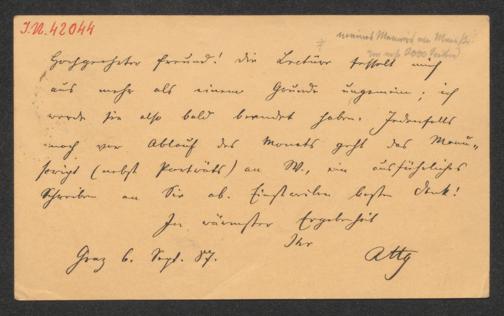 I.N. 42044
Hochgeehrter Freund! Die Lectüre fesselt mich
aus mehr als einem Grunde ungemein; ich
werde sie also bald beendet haben. Jedenfalls
noch vor Ablauf des Monats geht das Manu=
script (nebst Porträts) an W., ein ausführliches
Schreiben an Sie ab. Einstweilen besten Dank!
In wärmster Ergebenheit
Ihr
Graz 6. Sept. 87.